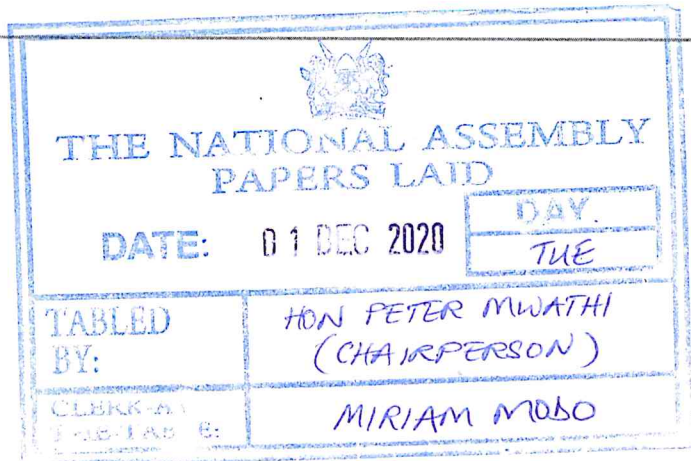 THE NATIONAL ASSEMBLY
PAPERS LAID
DATE: 01 DEC 2020
DAY.
TUE
TABLED
BY:
HON PETER MWATHI
(CHAIRPERSON)
CLERK-AT
MIRIAM MODO